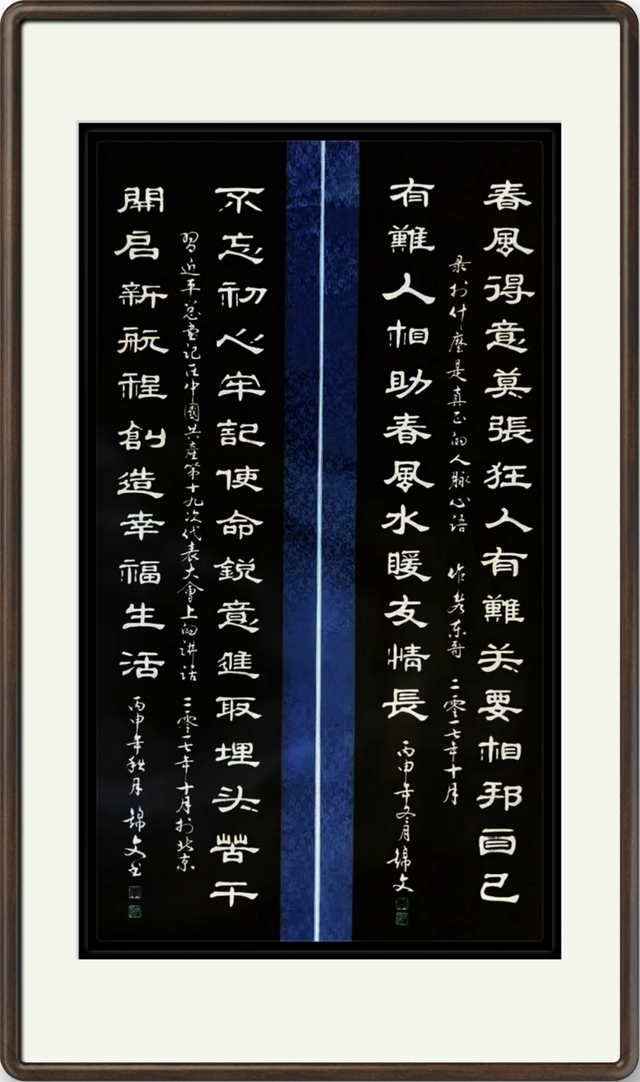 春風得意莫張狂人有難关要相邦自己
录於什麼是真正的人脉心语 作者东哥 二零一七年十月
有難人相助春風水暖友情長
丙申年冬月 锦文
不忘初心牢記使命銳意進取埋头苦干
習近平总書记在中國共產第十九次代表大會上的讲话 二零一七年十月於北京
開启新航程創造幸福生活
丙申年秋月 锦文书